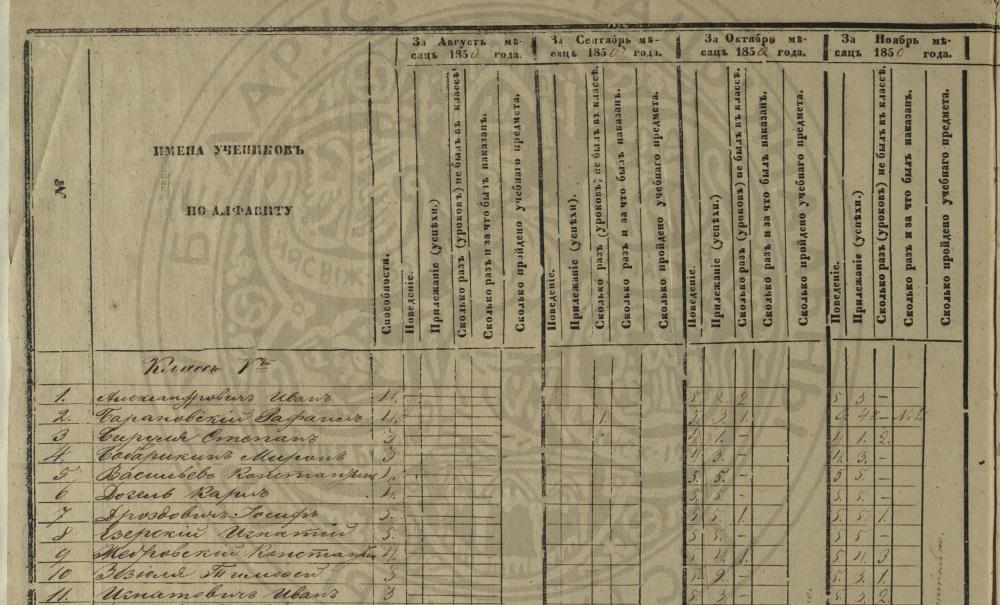 За Августъ мѣ-
сяцъ 1850 года.
За Сентябрь мѣ-
сяцъ 1850 года.
За Октябрь мѣ-
сяцъ 1850 года.
За Ноябрь мѣ-
сяцъ 1850 года.
№
ИМЕНА УЧЕНИКОВЪ
ПО АЛФАВИТУ
Способности.
Поведеніе.
Прилежаніе (успѣхи.)
Сколько разъ (уроковъ) не былъ въ классѣ.
Сколько разъ и за что былъ наказанъ.
Сколько пройдено учебнаго предмета.
Поведеніе.
Прилежаніе (успѣхи).
Сколько разъ (уроковъ) не былъ въ классѣ.
Сколько разъ и за что былъ наказанъ.
Сколько пройдено учебнаго предмета.
Поведеніе.
Прилежаніе (успѣхи.)
Сколько разъ (уроковъ) не былъ въ классѣ.
Сколько разъ и за что былъ наказанъ.
Сколько пройдено учебнаго предмета.
Поведеніе.
Прилежаніе (успѣхи.)
Сколько разъ (уроковъ) не былъ въ классѣ.
Сколько разъ и за что былъ наказанъ.
Сколько пройдено учебнаго предмета.
Классъ
1. Александровичъ Иванъ 4. 2 – 5 3 –
2. Барановскій Рафаилъ 4. 1. 5. 3. 1.
3 Бируля Степанъ 3 1. – 4. 1. 2.
4 Миронъ 3 4 3. – 4. 3. –
5 Васильевъ Константинъ 5. 5. – 5 5. –
6 Догель Карлъ 4. 5. 5. – 5. 5. –
7 Дроздовичъ Іосифъ 5. 5 5. 1. 5. 5. 1.
8 Езерскій Игнатій 5. 5. 5. – 5 5 –
9 Жебровскій Константинъ 4. 5 4. 1. 5 4. 3
10 Зезюля Тимофей 3 5. 2 – 5. 3. 1.
11. Игнатовичъ Иванъ 3 5. 3 – 5. 3. 2.